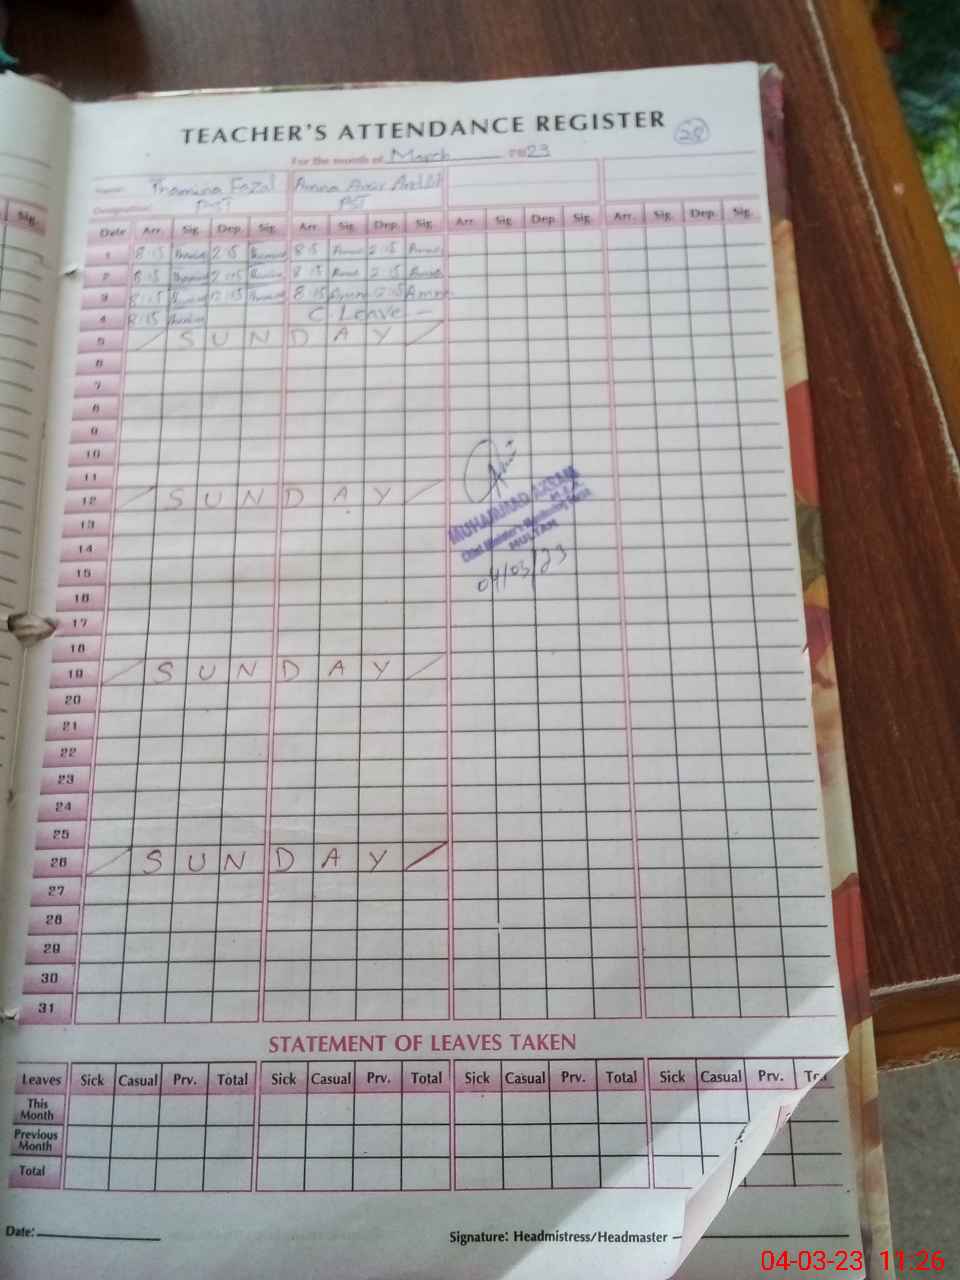 TEACHER'S ATTENDANCE REGISTER
28
For the month of March 23
Name: Thamina Fazal Amna
Designation: PST PST
Date Arr. Sig. Dep. Sig. Arr. Sig. Dep. Sig. Arr. Sig. Dep. Sig. Arr. Sig. Dep. Sig.
1 8:15 2:15 Amna 2:15 Amna
2 8:15 2:15 8:15 Amna 2:15 Amna
3 8:15 12:15 8:15 Amna 12:15 Amna
4 8:15 C. Leave –
5 SUNDAY
6
7
8
9
10
11
12 SUNDAY
13
14
15
16
17
18
19 SUNDAY
20
21
22
23
24
25
26 SUNDAY
27
28
29
30
31
MUHAMMAD AKRAM
MULTAN
04/03/23
STATEMENT OF LEAVES TAKEN
Leaves Sick Casual Prv. Total Sick Casual Prv. Total Sick Casual Prv. Total Sick Casual Prv.
This
Month
Previous
Month
Total
Date:
Signature: Headmistress/Headmaster
04-03-23 11:26